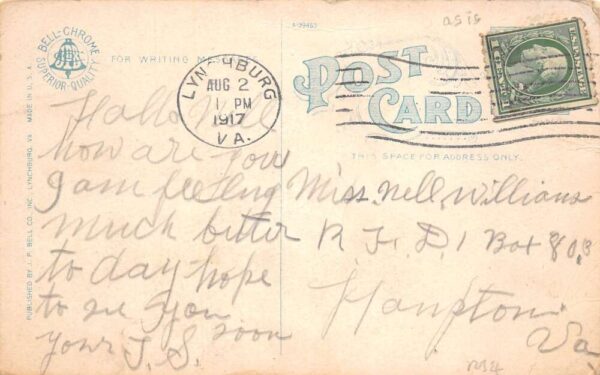 as is
A-39463
BELL-CHROME
SUPERIOR QUALITY
FOR WRITING MESSAGES
POST
CARD
THIS SPACE FOR ADDRESS ONLY.
LYNCHBURG
AUG 2
1 PM
1917
VA.
PUBLISHED BY J. P. BELL CO., INC. LYNCHBURG, VA. MADE IN U.S.A.
Hallo Nell
how are you
I am feeling
much better
to day hope
to see you
soon
your J. S.
Miss. Nell, Williams
R. F. D. 1 Box 803
Hampton
Va